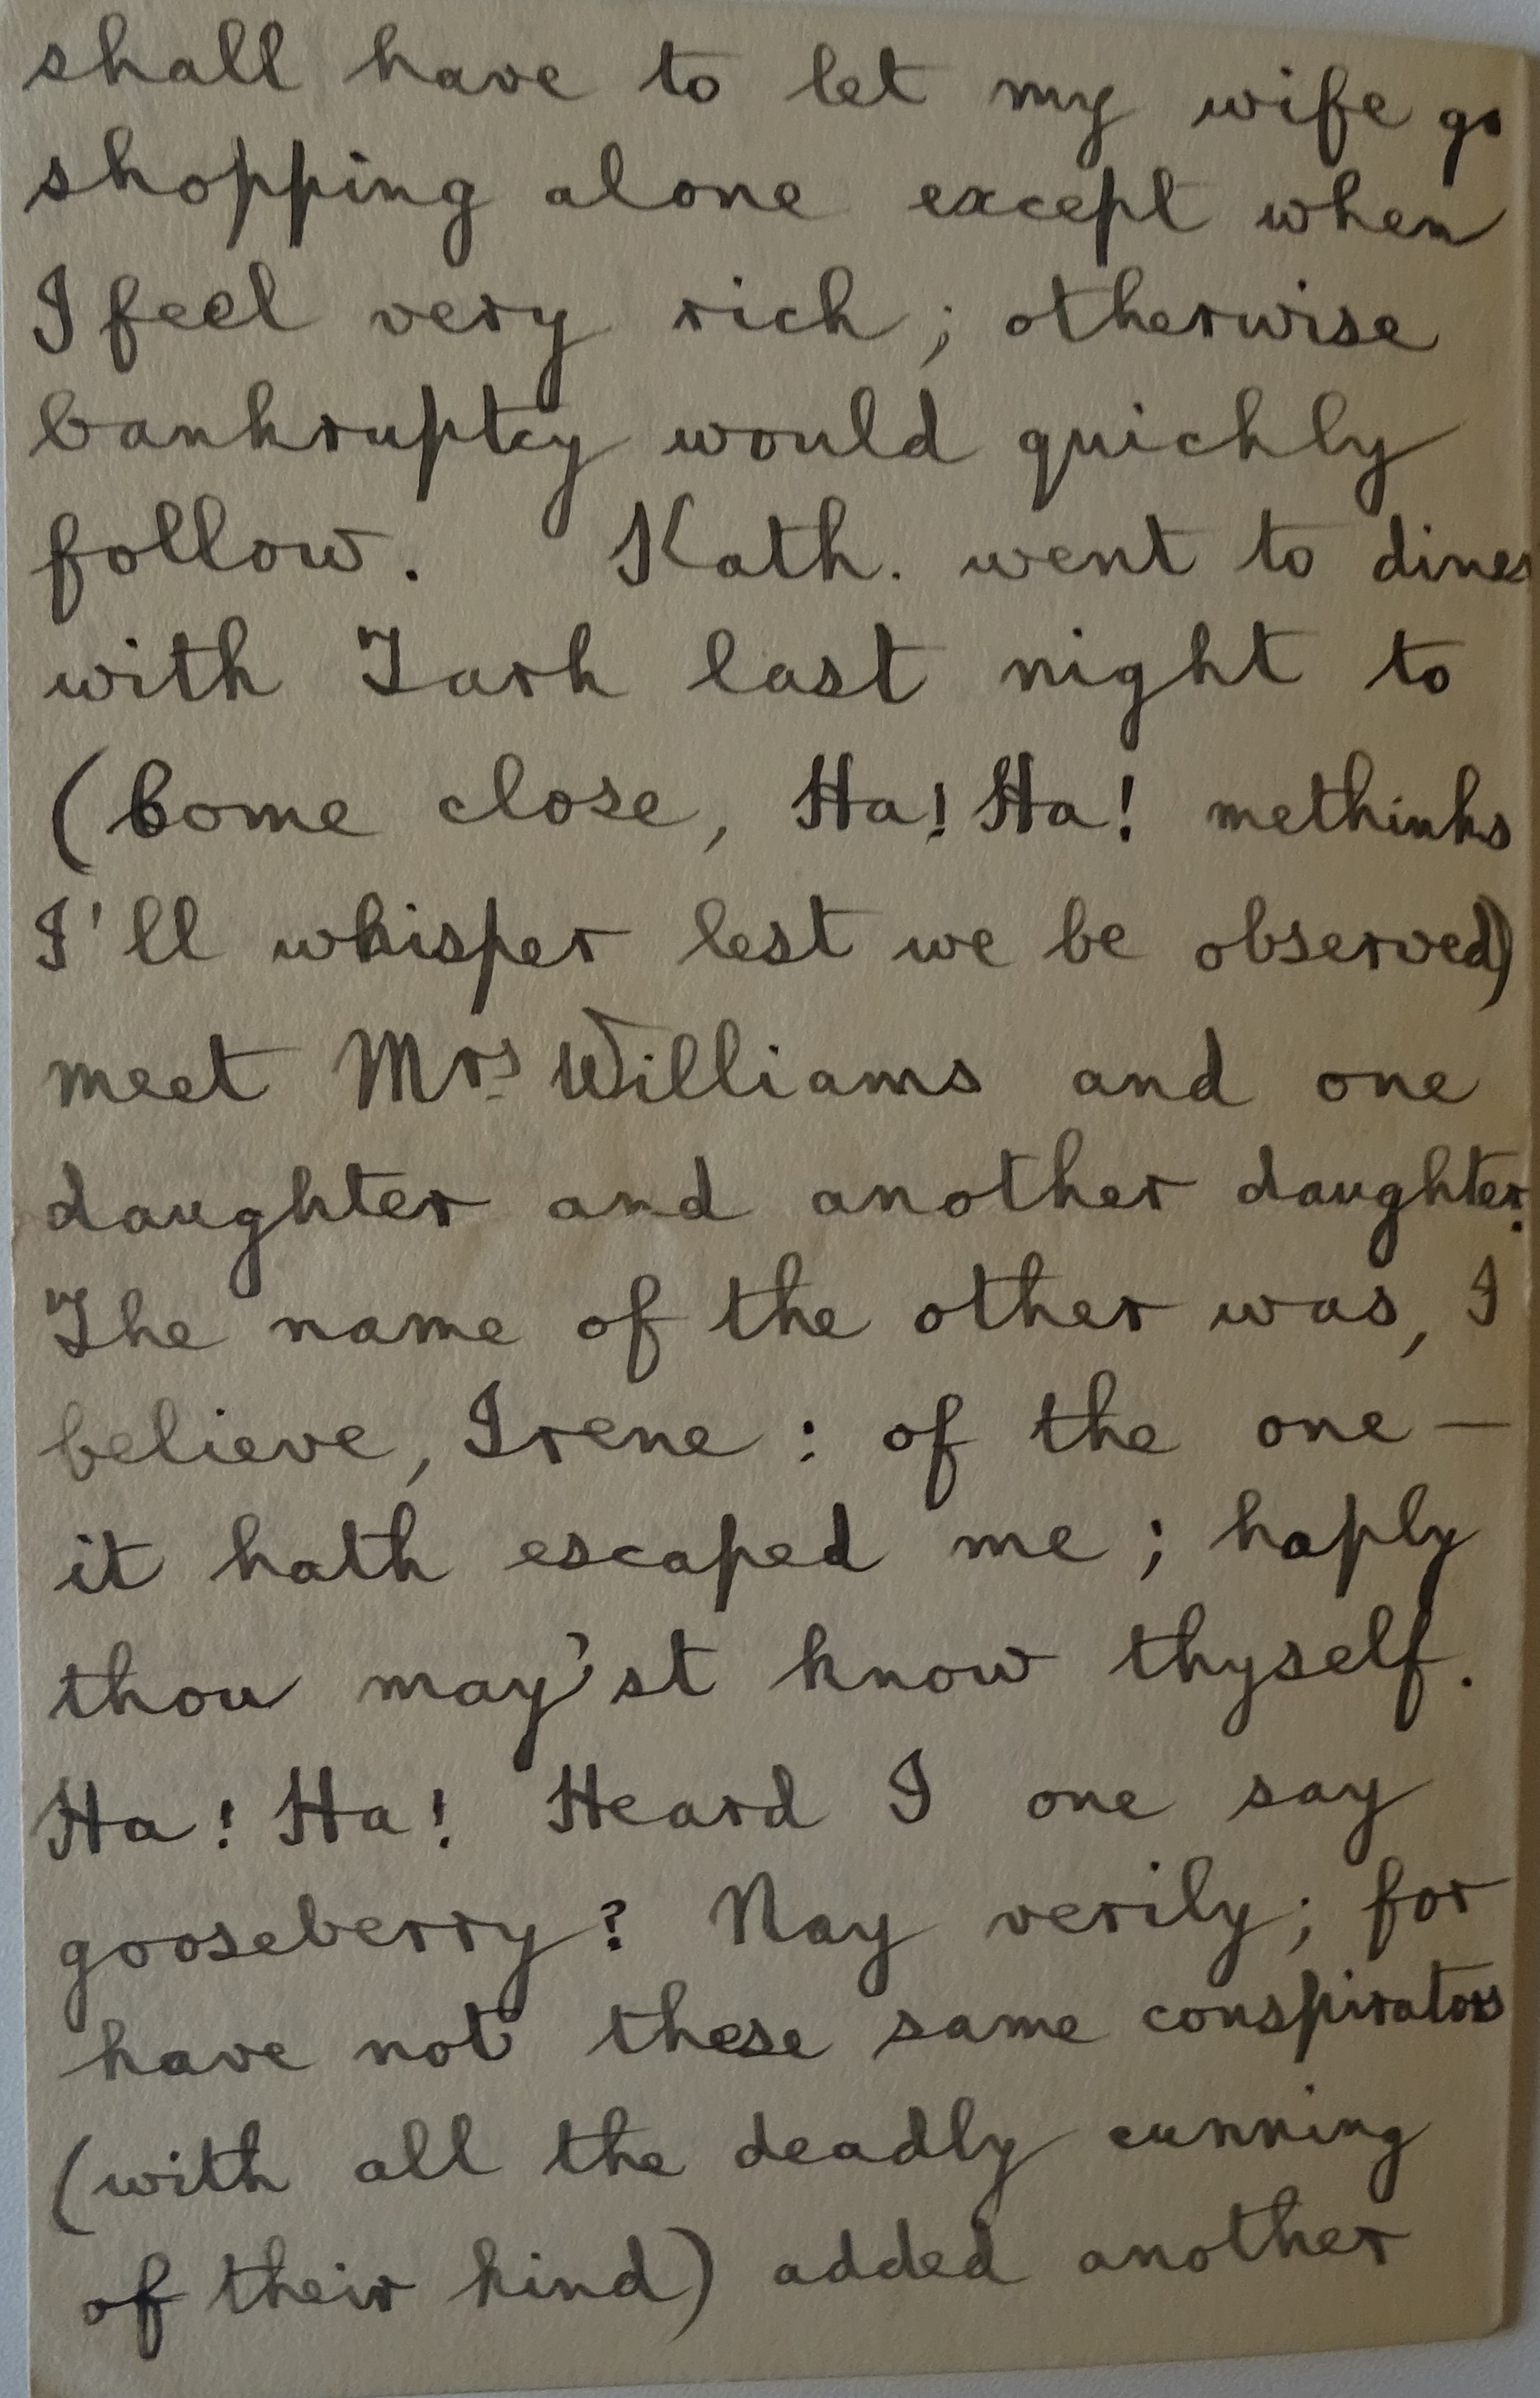 shall have to let my wife go
shopping alone except when
I feel very rich ; otherwise
bankruptcy would quickly
follow. Kath. went to diner
with Tark last night to
(Come close, Ha! Ha! methinks
I'll whisper lest we be observed)
meet Mrs Williams and one
daughter and another daughter.
The name of the other was, I
believe, Irene : of the one —
it hath escaped me ; haply
thou may'st know thyself.
Ha! Ha! Heard I one say
gooseberry? Nay verily; for
have not these same conspirators
(with all the deadly cunning
of their kind) added another